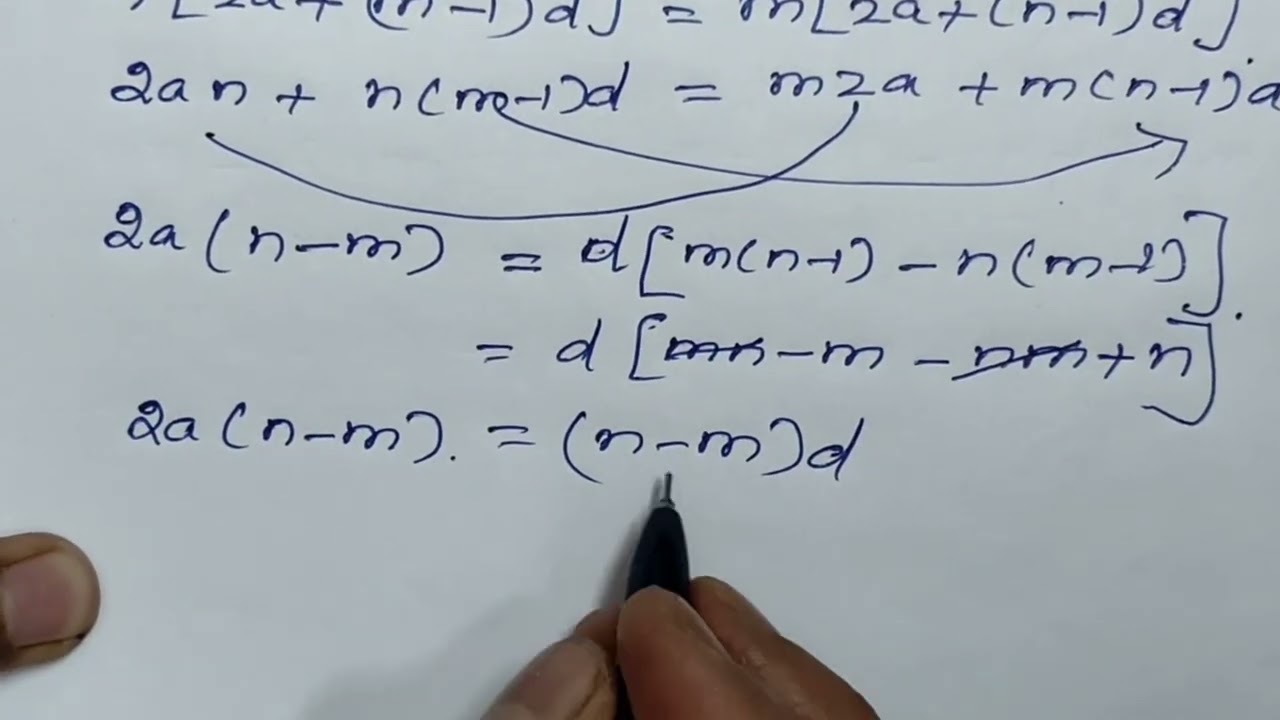 [2a+(m-1)d] = m[2a+(n-1)d].
2an + n(m-1)d = m2a + m(n-1)d
2a(n-m) = d[m(n-1) - n(m-1)].
= d[mn - m - nm + n]
2a(n-m). = (n-m)d